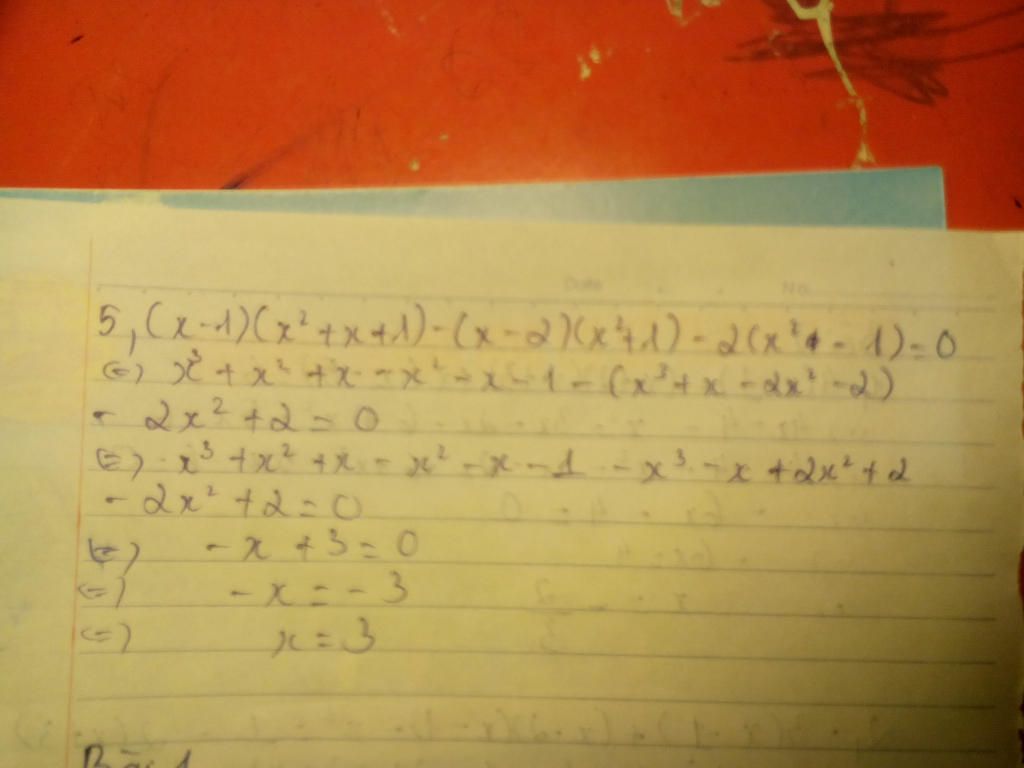 5, (x-1)(x²+x+1)-(x-2)(x²+1)-2(x²-1)=0
(=) x³+x²+x-x²-x-1-(x³+x-2x²-2)
- 2x²+2=0
(=) x³+x²+x-x²-x-1-x³-x+2x²+2
- 2x²+2=0
(=) -x+3=0
(=) -x=-3
(=) x=3